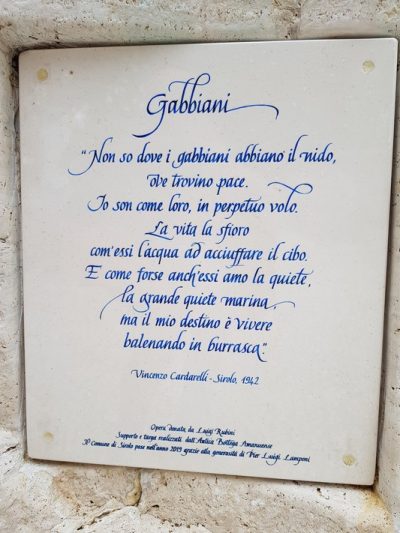 Gabbiani
"Non so dove i gabbiani abbiano il nido,
ove trovino pace.
Io son come loro, in perpetuo volo.
La vita la sfioro
com'essi l'acqua ad acciuffare il cibo.
E come forse anch'essi amo la quiete,
la grande quiete marina,
ma il mio destino è vivere
balenando in burrasca."
Vincenzo Cardarelli - Sirolo, 1942
Opera donata da Luigi Rubini
Supporto e targa realizzati dall'Antica Bottega Amanuense
Il Comune di Sirolo pose nell'anno 2019 grazie alla generosità di Pier Luigi Lamponi